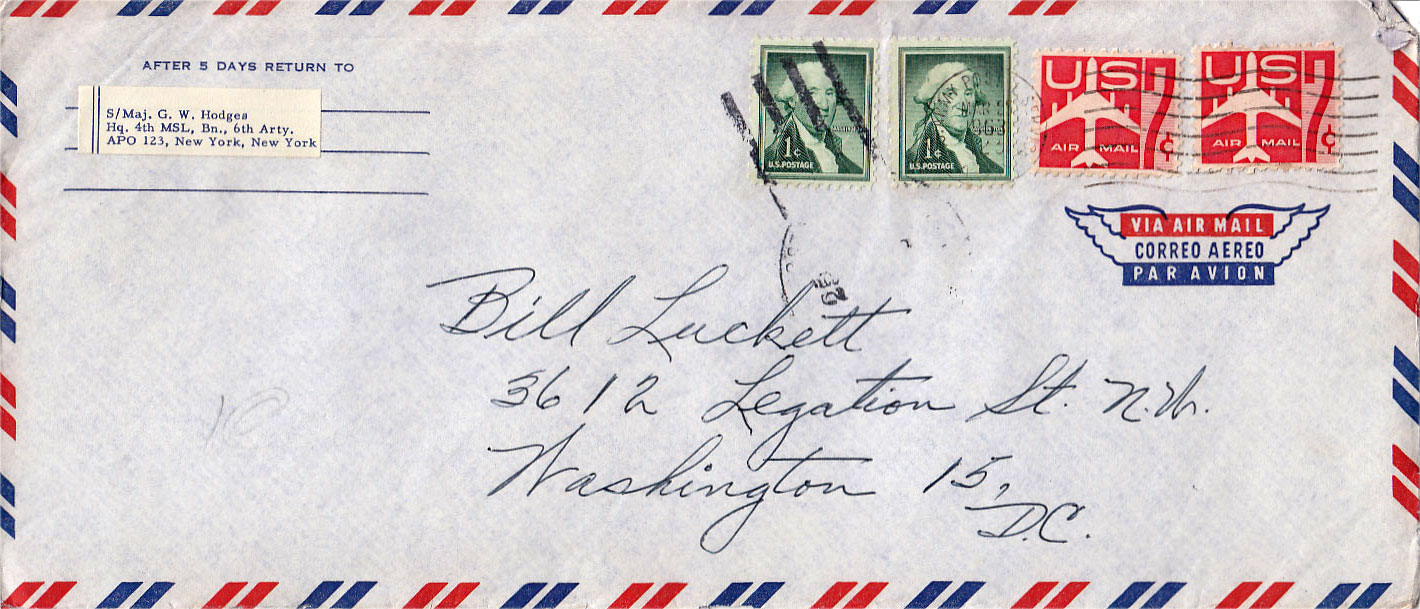 AFTER 5 DAYS RETURN TO
S/Maj. G. W. Hodges
Hq. 4th MSL, Bn., 6th Arty.
APO 123, New York, New York
1¢
U.S. POSTAGE
1¢
U.S. POSTAGE
US 7¢
AIR MAIL
US 7¢
AIR MAIL
VIA AIR MAIL
CORREO AEREO
PAR AVION
Bill Luckett
3612 Legation St. N.W.
Washington 15,
D.C.